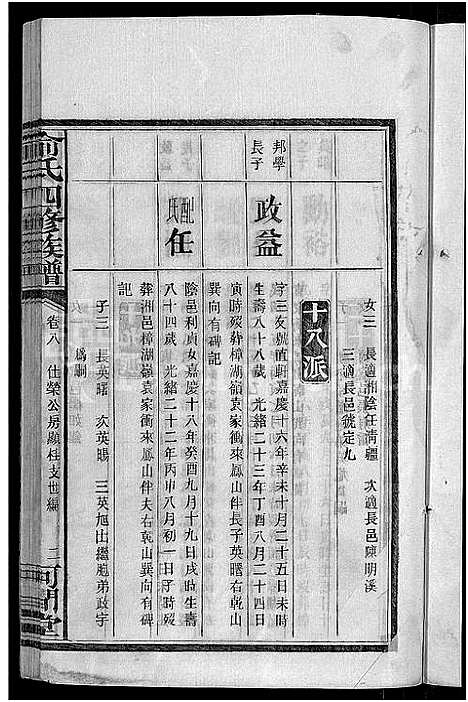 女三　長適湘陰任清疆　次適長邑陳明溪
三適長邑虢定九
十八派
邦學長子
政益
字三友號值軒嘉慶十六年辛未十月二十五日未時
生壽八十八歲　光緒二十三年丁酉八月二十四日
寅時歿葬樟湖嶺袁家衝來鳳山伴長子英曙右乾山
巽向有碑記
配任氏
陰邑利貞女嘉慶十八年癸酉九月十九日戌時生壽
八十四歲　光緒二十二年丙申八月初一日子時歿
葬湘邑樟湖嶺袁家衝來鳳山伴夫右乾山巽向有碑
記
子三　長英曙　次英賜　三英旭出繼胞弟政字
為嗣
俞氏四修族譜
卷八　仕榮公房顯桂支世編
二
河間堂